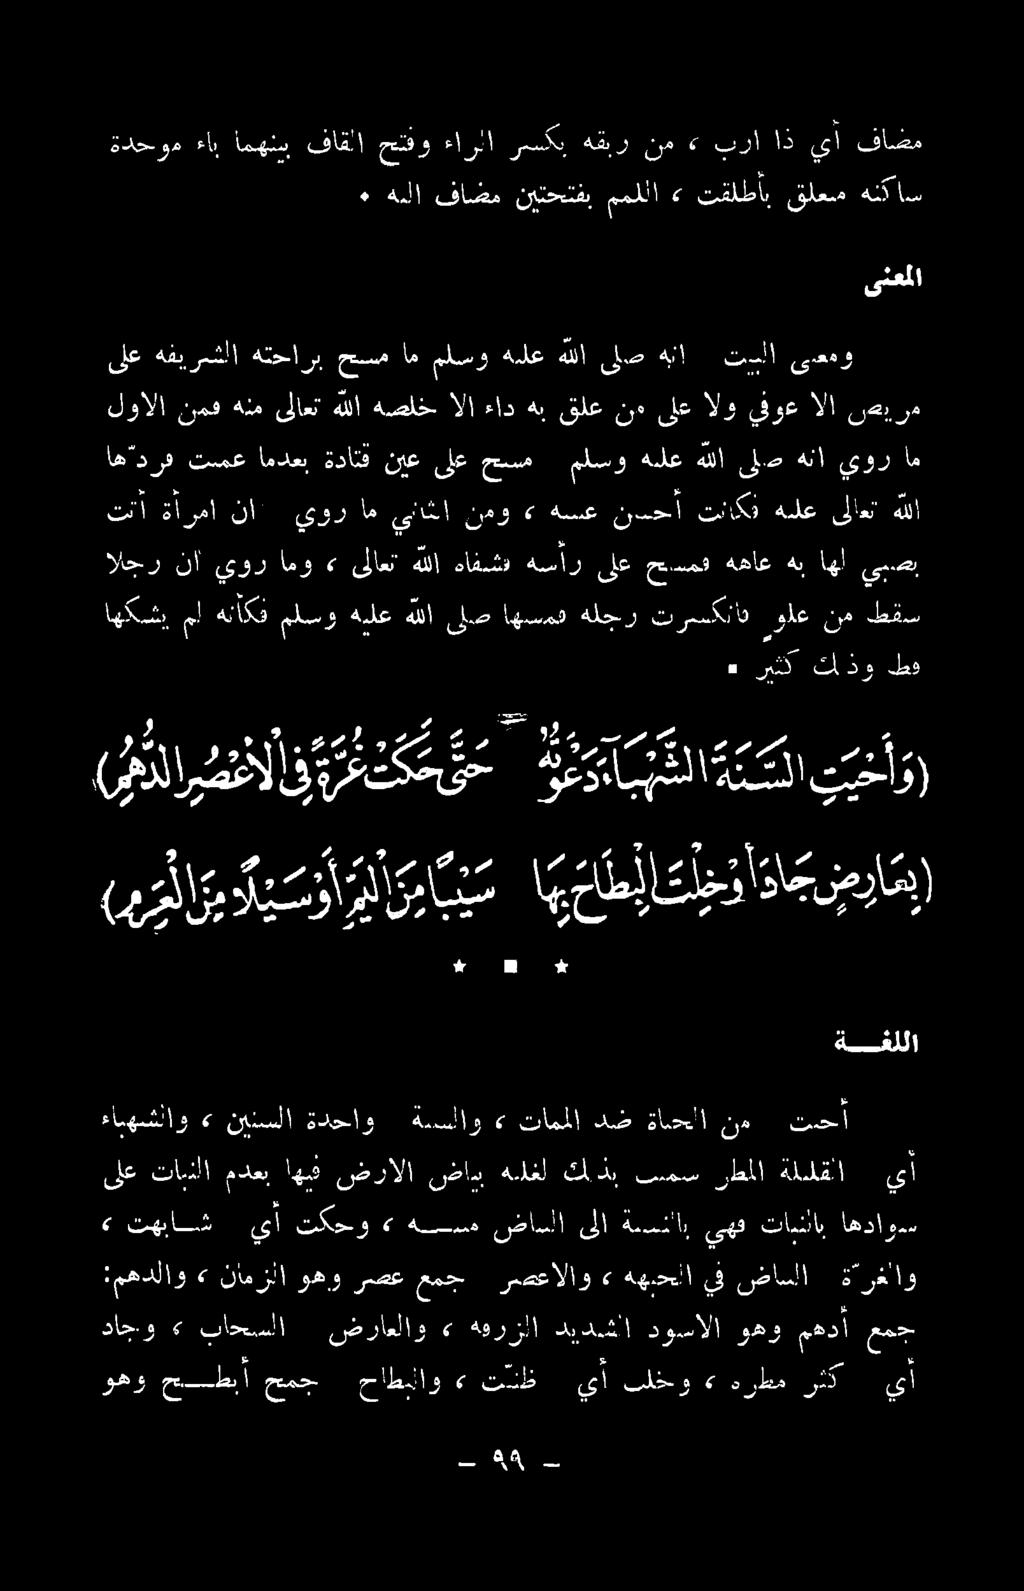 مضاف أي ذا ارب ، من ربقه بكسر الراء وفتح القاف بينهما باء موحدة
ساكنه متعلق بأطلقت ، اللمم بفتحتين مضاف اليه •
المعنى
ومعنى البيت انه صلى الله عليه وسلم ما مسح براحته الشريفه على
مريض الا عوفي ولا على من علق به داء الا خلصه الله تعالى منه فمن الاول
ما روي انه صلى الله عليه وسلم مسح على عين قتادة بعدما عميت فردّها
الله تعالى عليه فكانت أحسن عينيه ، ومن الثاني ما روي ان امرأة أتت
بصبي لها به عاهه فمسح على رأسه فشفاه الله تعالى ، وما روي ان رجلا
سقط من علو فانكسرت رجله فمسها صلى الله عليه وسلم فكأنه لم يشكها
قط وذلك كثير ▪
(وَأَحْيَتِ السَّنَةَ الشَّهْبَاءَ دَعْوَتُهُ حَتَّى حَكَتْ غُرَّةً فِي الْأَعْصُرِ الدُّهُمِ)
(بِعَارِضٍ جَادَ أَوْ خِلْتَ الْبِطَاحَ بِهَا سَيْبًا مِنَ الْيَمِّ أَوْ سَيْلًا مِنَ الْعَرِمِ)
★ ■ ★
اللغــة
أحيت من الحياة ضد الممات ، والسنة واحدة السنين ، والشهباء
أي القليلة المطر سميت بذلك لغلبه بياض الارض فيها بعدم النبات على
سوادها بالنبات فهي بالنسبة الى البياض ميتــه ، وحكت أي شــابهت ،
والغرّة البياض في الجبهه ، والاعصر جمع عصر وهو الزمان ، والدهم:
جمع أدهم وهو الاسود الشديد الزرقه ، والعارض السحاب ، وجاد
أي كثر مطره ، وخلت أي ظننت ، والبطاح جمع أبطــح وهو
– ٩٩ –